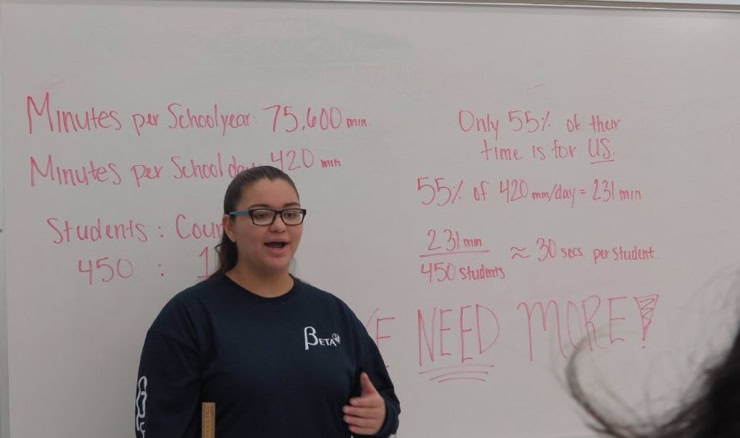 Minutes per School year: 75,600 min.
Minutes per School day 420 min
Students : Coun
450 : 1
Only 55% of their
time is for US.
55% of 420 min/day = 231 min
231 min
450 students
≈ 30 secs per student.
E NEED MORE!
BETA